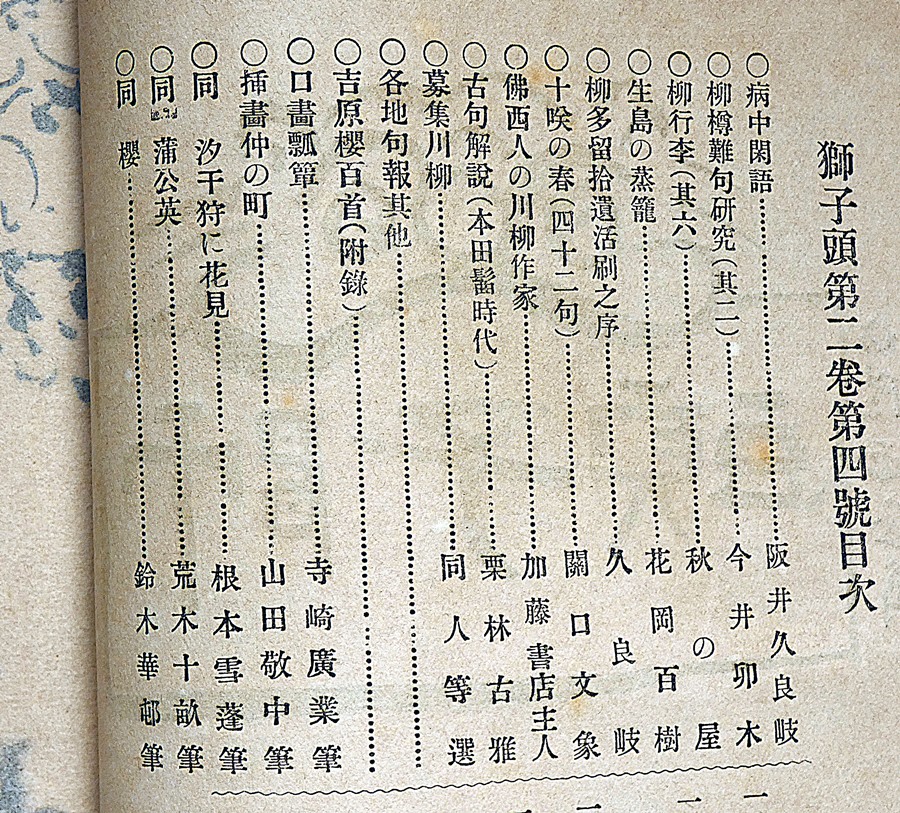 獅子頭第二卷第四號目次
○病中閑語……阪井久良岐
○柳樽難句研究(其二)……今井卯木
○柳行李(其六)……秋の屋
○生島の蒸籠……花岡百樹
○柳多留拾遺活刷之序……久良岐
○十咲の春(四十二句)……關口文象
○佛西人の川柳作家……加藤書店主人
○古句解說(本田髷時代)……栗林古雅
○募集川柳……同人等選
○各地句報其他……
○吉原櫻百首(附錄)……
○口畫瓢簞……寺崎廣業筆
○揷畫仲の町……山田敬中筆
○同 汐干狩に花見……根本雪蓬筆
○同 蒲公英……荒木十畝筆
○同 櫻……鈴木華邨筆